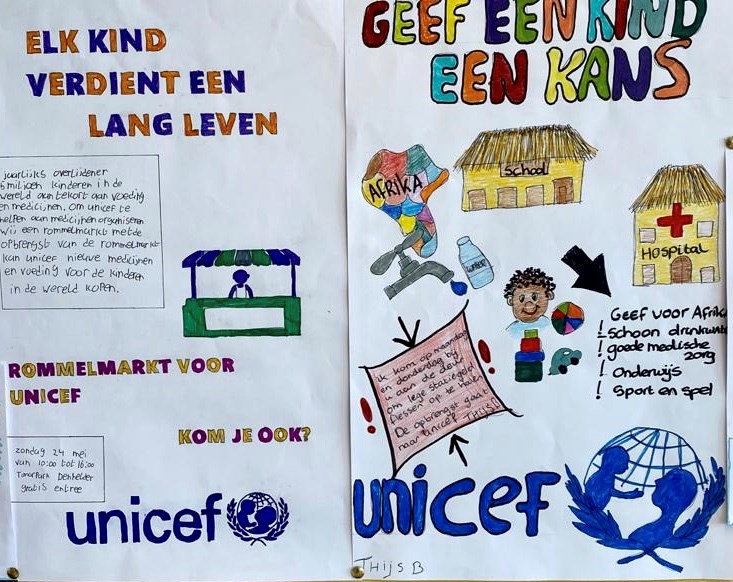 ELK KIND
VERDIENT EEN
LANG LEVEN
jaarlijks overlijdener
6 miljoen kinderen in de
wereld aan tekort aan voeding
en medicijnen. om unicef te
helpen aan medicijnen organiseren
wij een rommelmarkt met de
opbrengst van de rommelmarkt
kan unicef nieuwe medicijnen
en voeding voor de kinderen
in de wereld kopen.
ROMMELMARKT VOOR
UNICEF
KOM JE OOK?
zondag 24 mei
van 10:00 tot 16:00
Timorpark Denhelder
gratis entree
unicef
GEEF EEN KIND
EEN KANS
AFRIKA
School
WATER
Hospital
Geef voor Afrika
! Schoon drinkwate
! goede medische
zorg
! Onderwijs
! Sport en spel
ik kom op maandag
en donderdag bij
u aan de deur
om lege statiegeld
flessen op te halen
De opbrengst gaat
naar unicef THIJS
unicef
THijs B